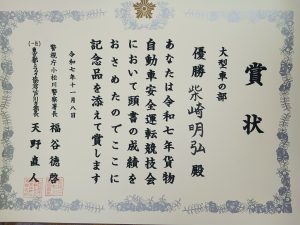 賞状
大型車の部
優勝 柴崎明弘 殿
あなたは令和七年貨物
自動車安全運転競技会
において頭書の成績を
おさめたのでここに
記念品を添えて賞します
令和七年十一月八日
警視庁小松川警察署長
福谷徳啓
天野直人